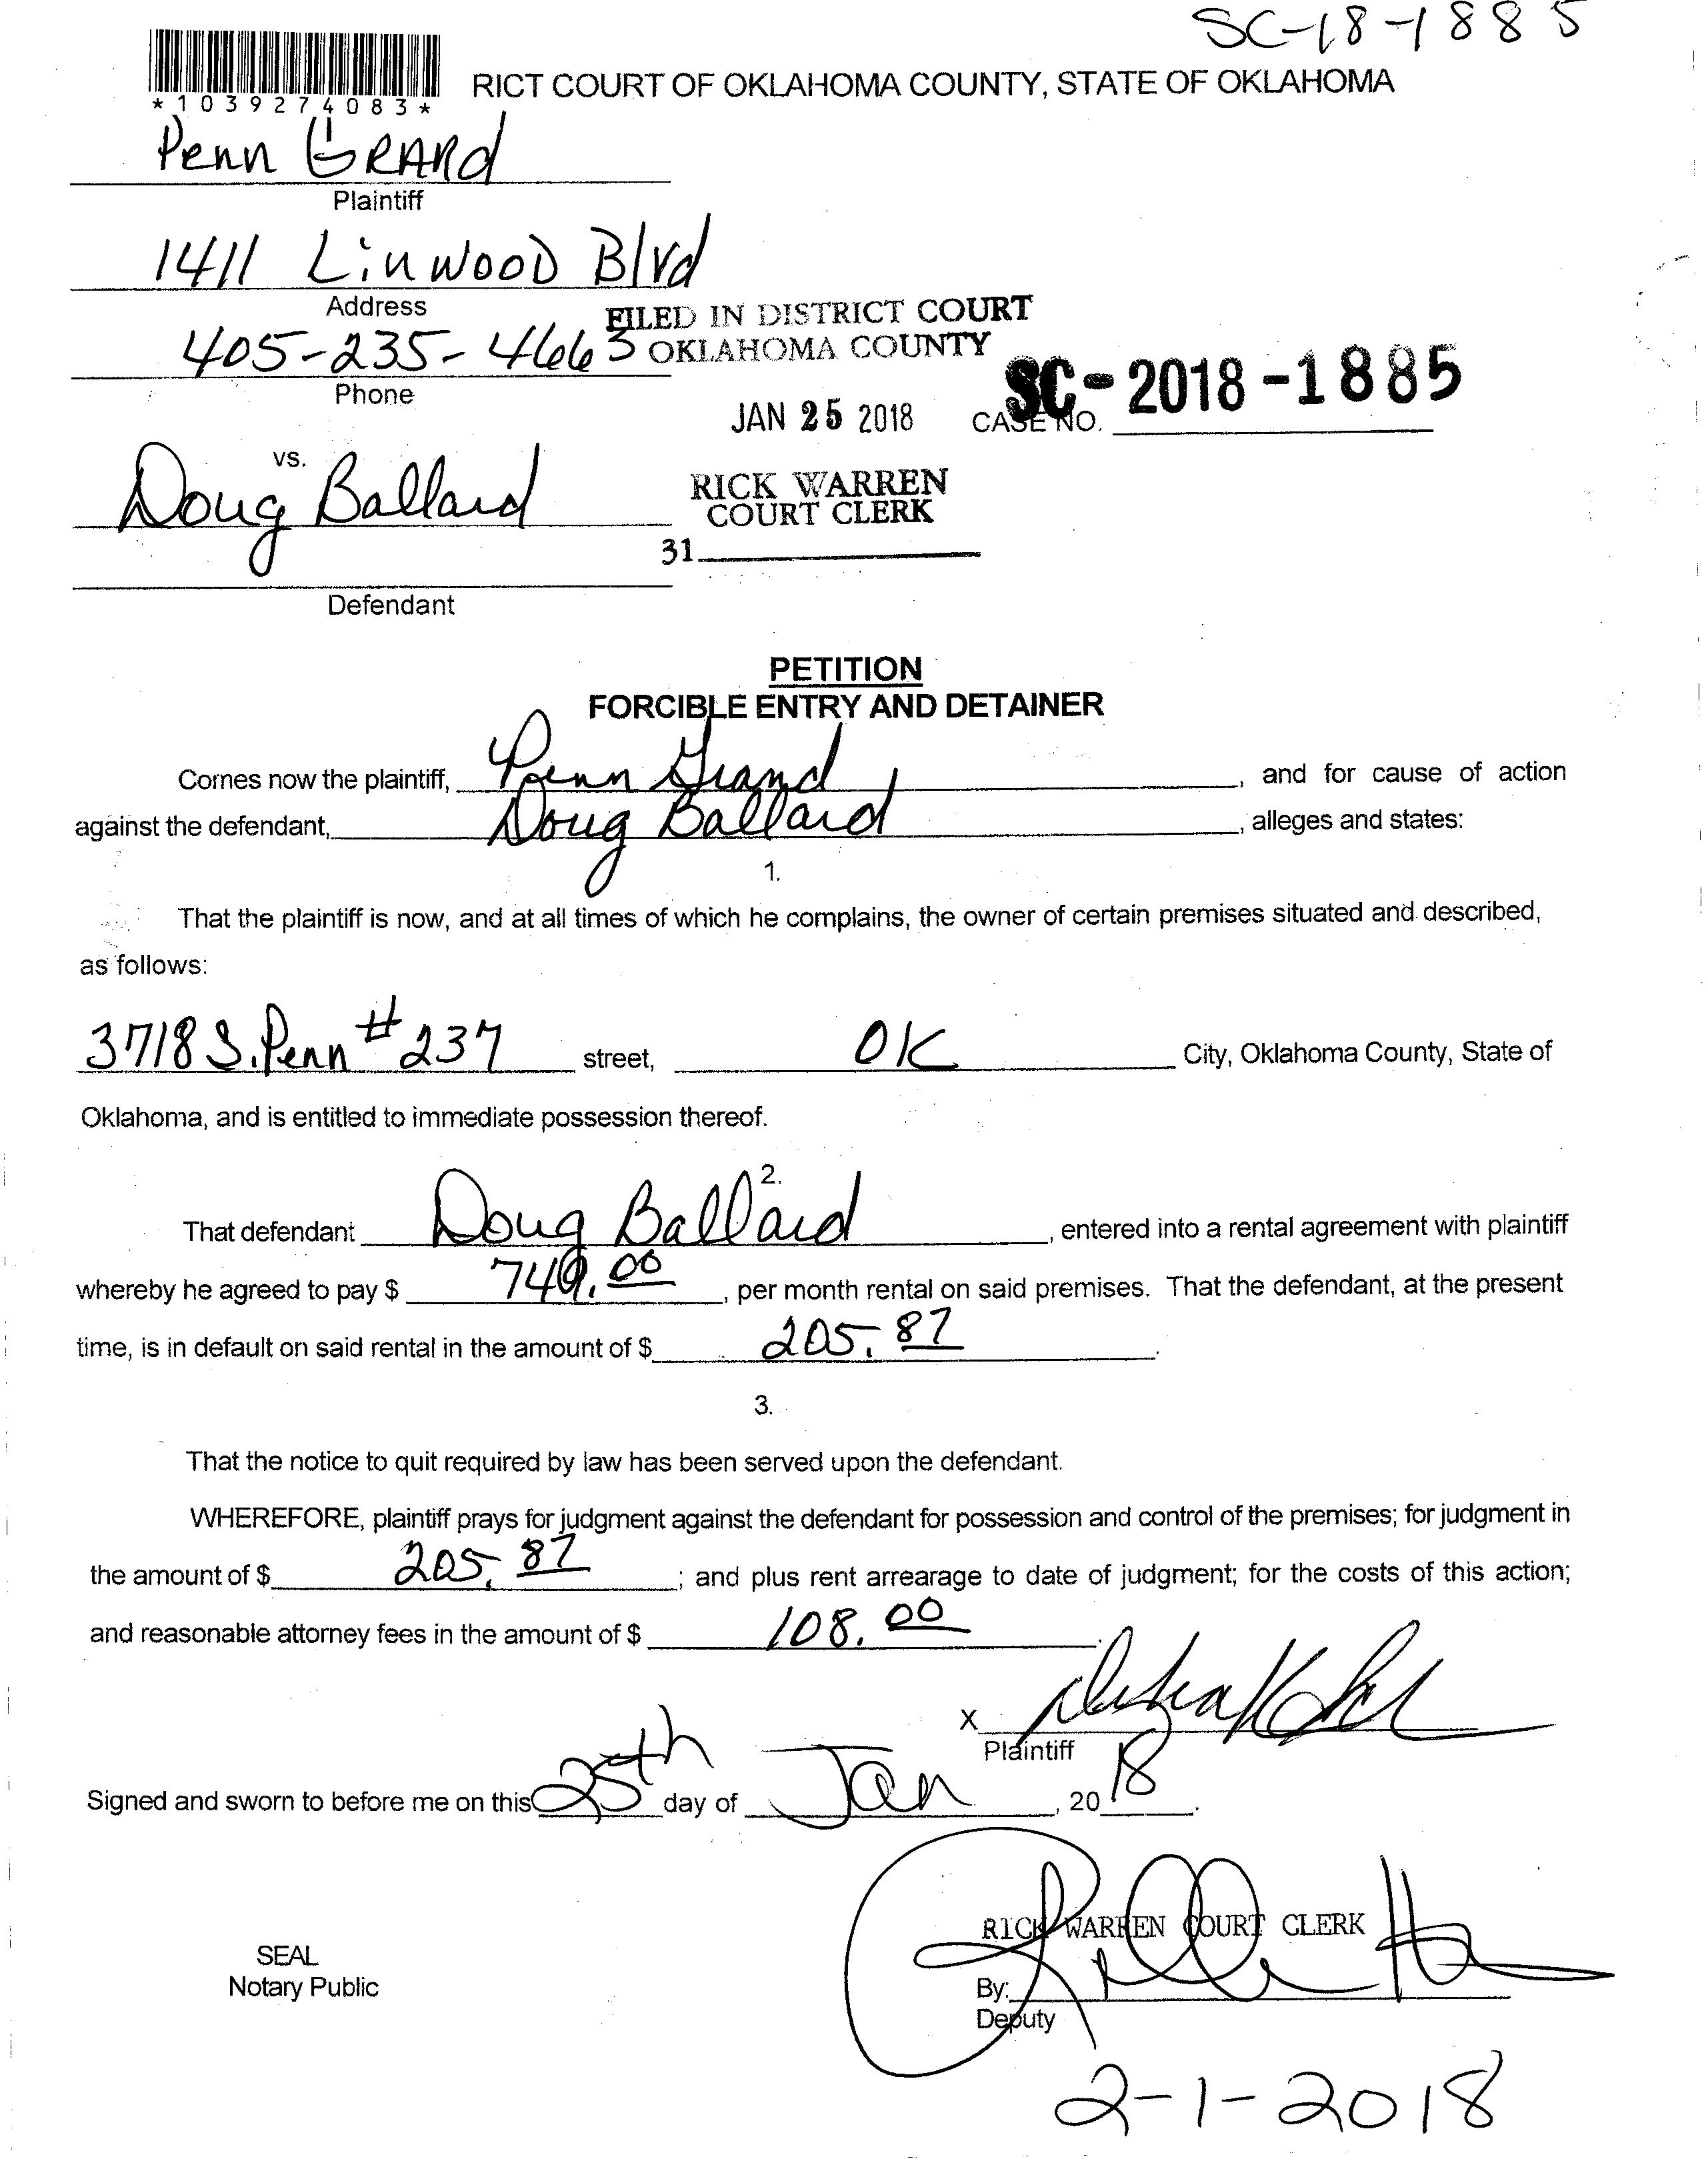 SC-18-1885
*1039274083*
RICT COURT OF OKLAHOMA COUNTY, STATE OF OKLAHOMA
Penn GRAND
Plaintiff
1411 LinWOOD Blvd
Address
405-235-4663
Phone
FILED IN DISTRICT COURT
OKLAHOMA COUNTY
JAN 25 2018
CASE NO. SC-2018-1885
vs.
Doug Ballard
RICK WARREN
COURT CLERK
31
Defendant
PETITION
FORCIBLE ENTRY AND DETAINER
Comes now the plaintiff, Penn Grand, and for cause of action
against the defendant, Doug Ballard, alleges and states:
1.
That the plaintiff is now, and at all times of which he complains, the owner of certain premises situated and described,
as follows:
3718 S. Penn #237 street, OK City, Oklahoma County, State of
Oklahoma, and is entitled to immediate possession thereof.
2.
That defendant Doug Ballard, entered into a rental agreement with plaintiff
whereby he agreed to pay $ 749.00, per month rental on said premises. That the defendant, at the present
time, is in default on said rental in the amount of $ 205.87.
3.
That the notice to quit required by law has been served upon the defendant.
WHEREFORE, plaintiff prays for judgment against the defendant for possession and control of the premises; for judgment in
the amount of $ 205.87; and plus rent arrearage to date of judgment; for the costs of this action;
and reasonable attorney fees in the amount of $ 108.00.
X
Plaintiff
Signed and sworn to before me on this 25th day of Jan, 2018.
RICK WARREN COURT CLERK
SEAL
Notary Public
By:
Deputy
2-1-2018